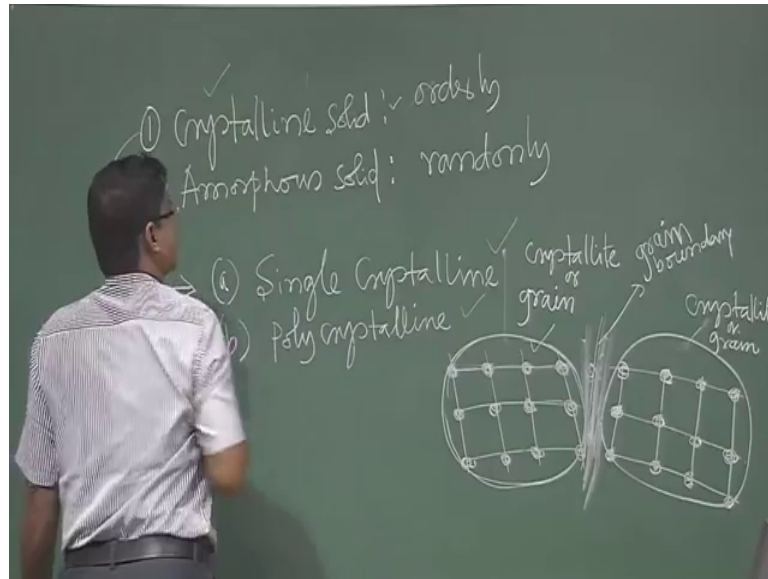 ① Crystalline solid : orderly
Amorphous solid : randomly
(a) Single Crystalline
b) Poly crystalline
crystallite
or
grain
grain
boundary
crystallite
or
grain